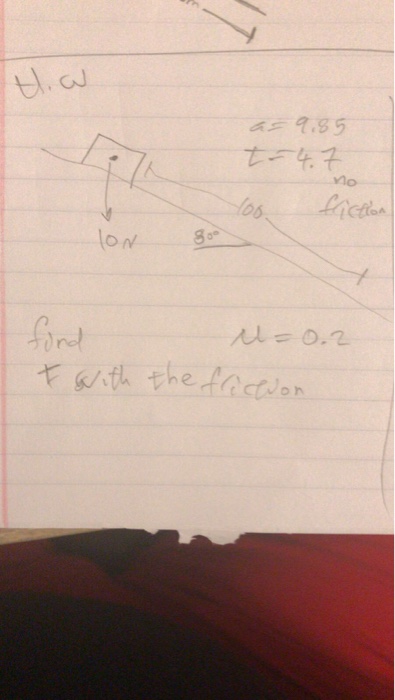 H.W
a = 9.85
t = 4.7
no
friction
100
10N
80°
find
μ = 0.2
t with the friction